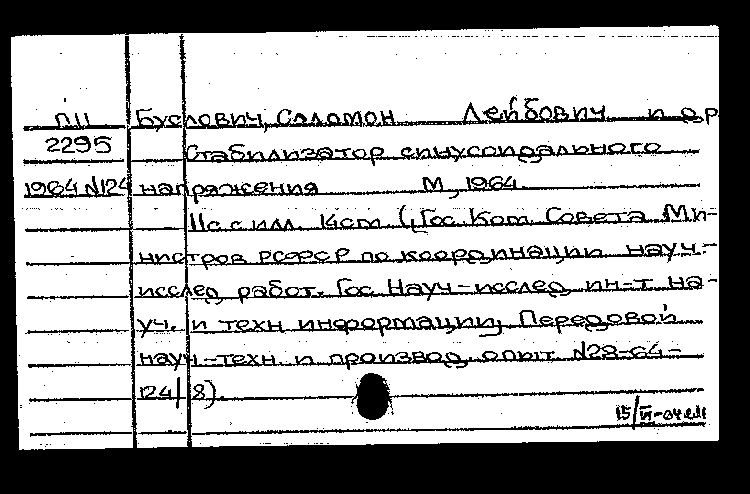 П11 Буслович, Соломон Лейбович и др
2295 Стабилизатор синусоидального
1964 N124 напряжения М, 1964.
11с. с илл. 1 ст. (Гос. Ком. Совета Ми-
нистров РСФСР по координации науч.-
исслед. работ. Гос. Науч-исслед. ин-т на-
уч. и техн информации, Передовой
науч-техн. и производ. опыт. N28-64-
124/8).
15/VI-04